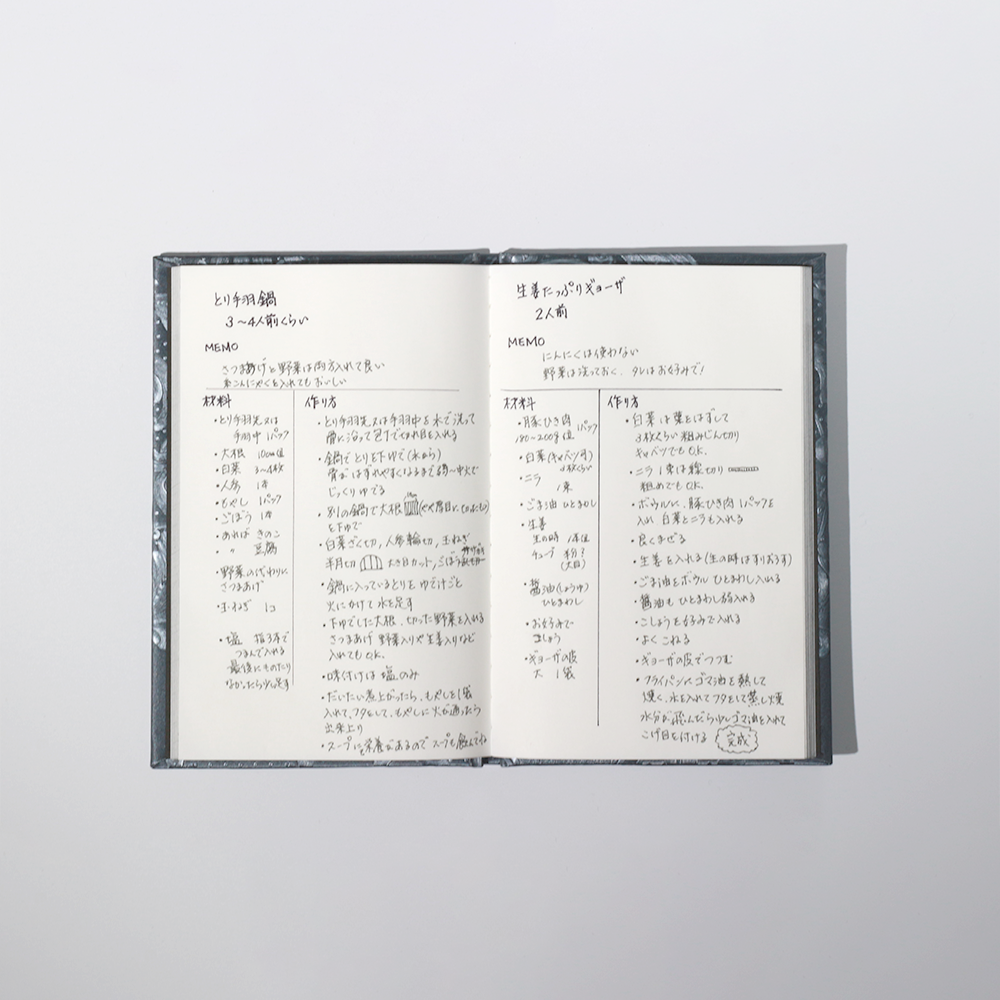 とり手羽鍋
3〜4人前くらい
MEMO
さつまあげと野菜は両方入れて良い
糸こんにゃくを入れてもおいしい
材料
・とり手羽先又は
手羽中 1パック
・大根 10cm位
・白菜 3〜4枚
・人参 1本
・もやし 1パック
・ごぼう 1本
・あれば きのこ
・〃 豆腐
・野菜の代わりに
さつまあげ
・玉ねぎ 1コ
・塩 指3本で
つまんで入れる
最後にものたり
なかったら少し足す
作り方
・とり手羽先又は手羽中を水で洗って
骨に沿って包丁で切れ目を入れる
・鍋でとりを下ゆで(水から)
骨がはずれやすくなるまで弱〜中火で
じっくりゆでる
・別の鍋で大根(やや厚目に切ったもの)
を下ゆで
・白菜ざく切り、人参輪切、玉ねぎ
半月切 大き目カット、ごぼう
・鍋に入っているとりをゆで汁ごと
火にかけて水を足す
・下ゆでした大根、切った野菜を入れる
さつまあげ 野菜入りや生姜入りなど
入れてもO.K.
・味付けは塩のみ
・だいたい煮上がったら、もやしを1袋
入れて、フタをして、もやしに火が通ったら
出来上り
・スープに栄養があるのでスープも飲んでね
生姜たっぷりギョーザ
2人前
MEMO
にんにくは使わない
野菜は洗っておく、タレはお好みで!
材料
・豚ひき肉 1パック
180〜200g位
・白菜(キャベツ可)
3枚くらい
・ニラ
1束
・ごま油 ひとまわし
・生姜
生の時 1本位
チューブ 半分?
(大目)
・醤油(しょうゆ)
ひとまわし
・お好みで
こしょう
・ギョーザの皮
大 1袋
作り方
・白菜は葉をはずして
3枚くらい粗みじん切り
キャベツでもO.K.
・ニラ 1束は細切り
粗めでもO.K.
・ボウルに、豚ひき肉 1パックを
入れ 白菜とニラも入れる
・良くまぜる
・生姜を入れる(生の時はすりおろす)
・ごま油をボウルひとまわし入れる
・醤油もひとまわし弱入れる
・こしょうを好みで入れる
・よくこねる
・ギョーザの皮でつつむ
・フライパンにゴマ油を熱して
焼く、水を入れてフタをして蒸し焼
水分が飛んだら少しゴマ油を入れて
こげ目を付ける 完成